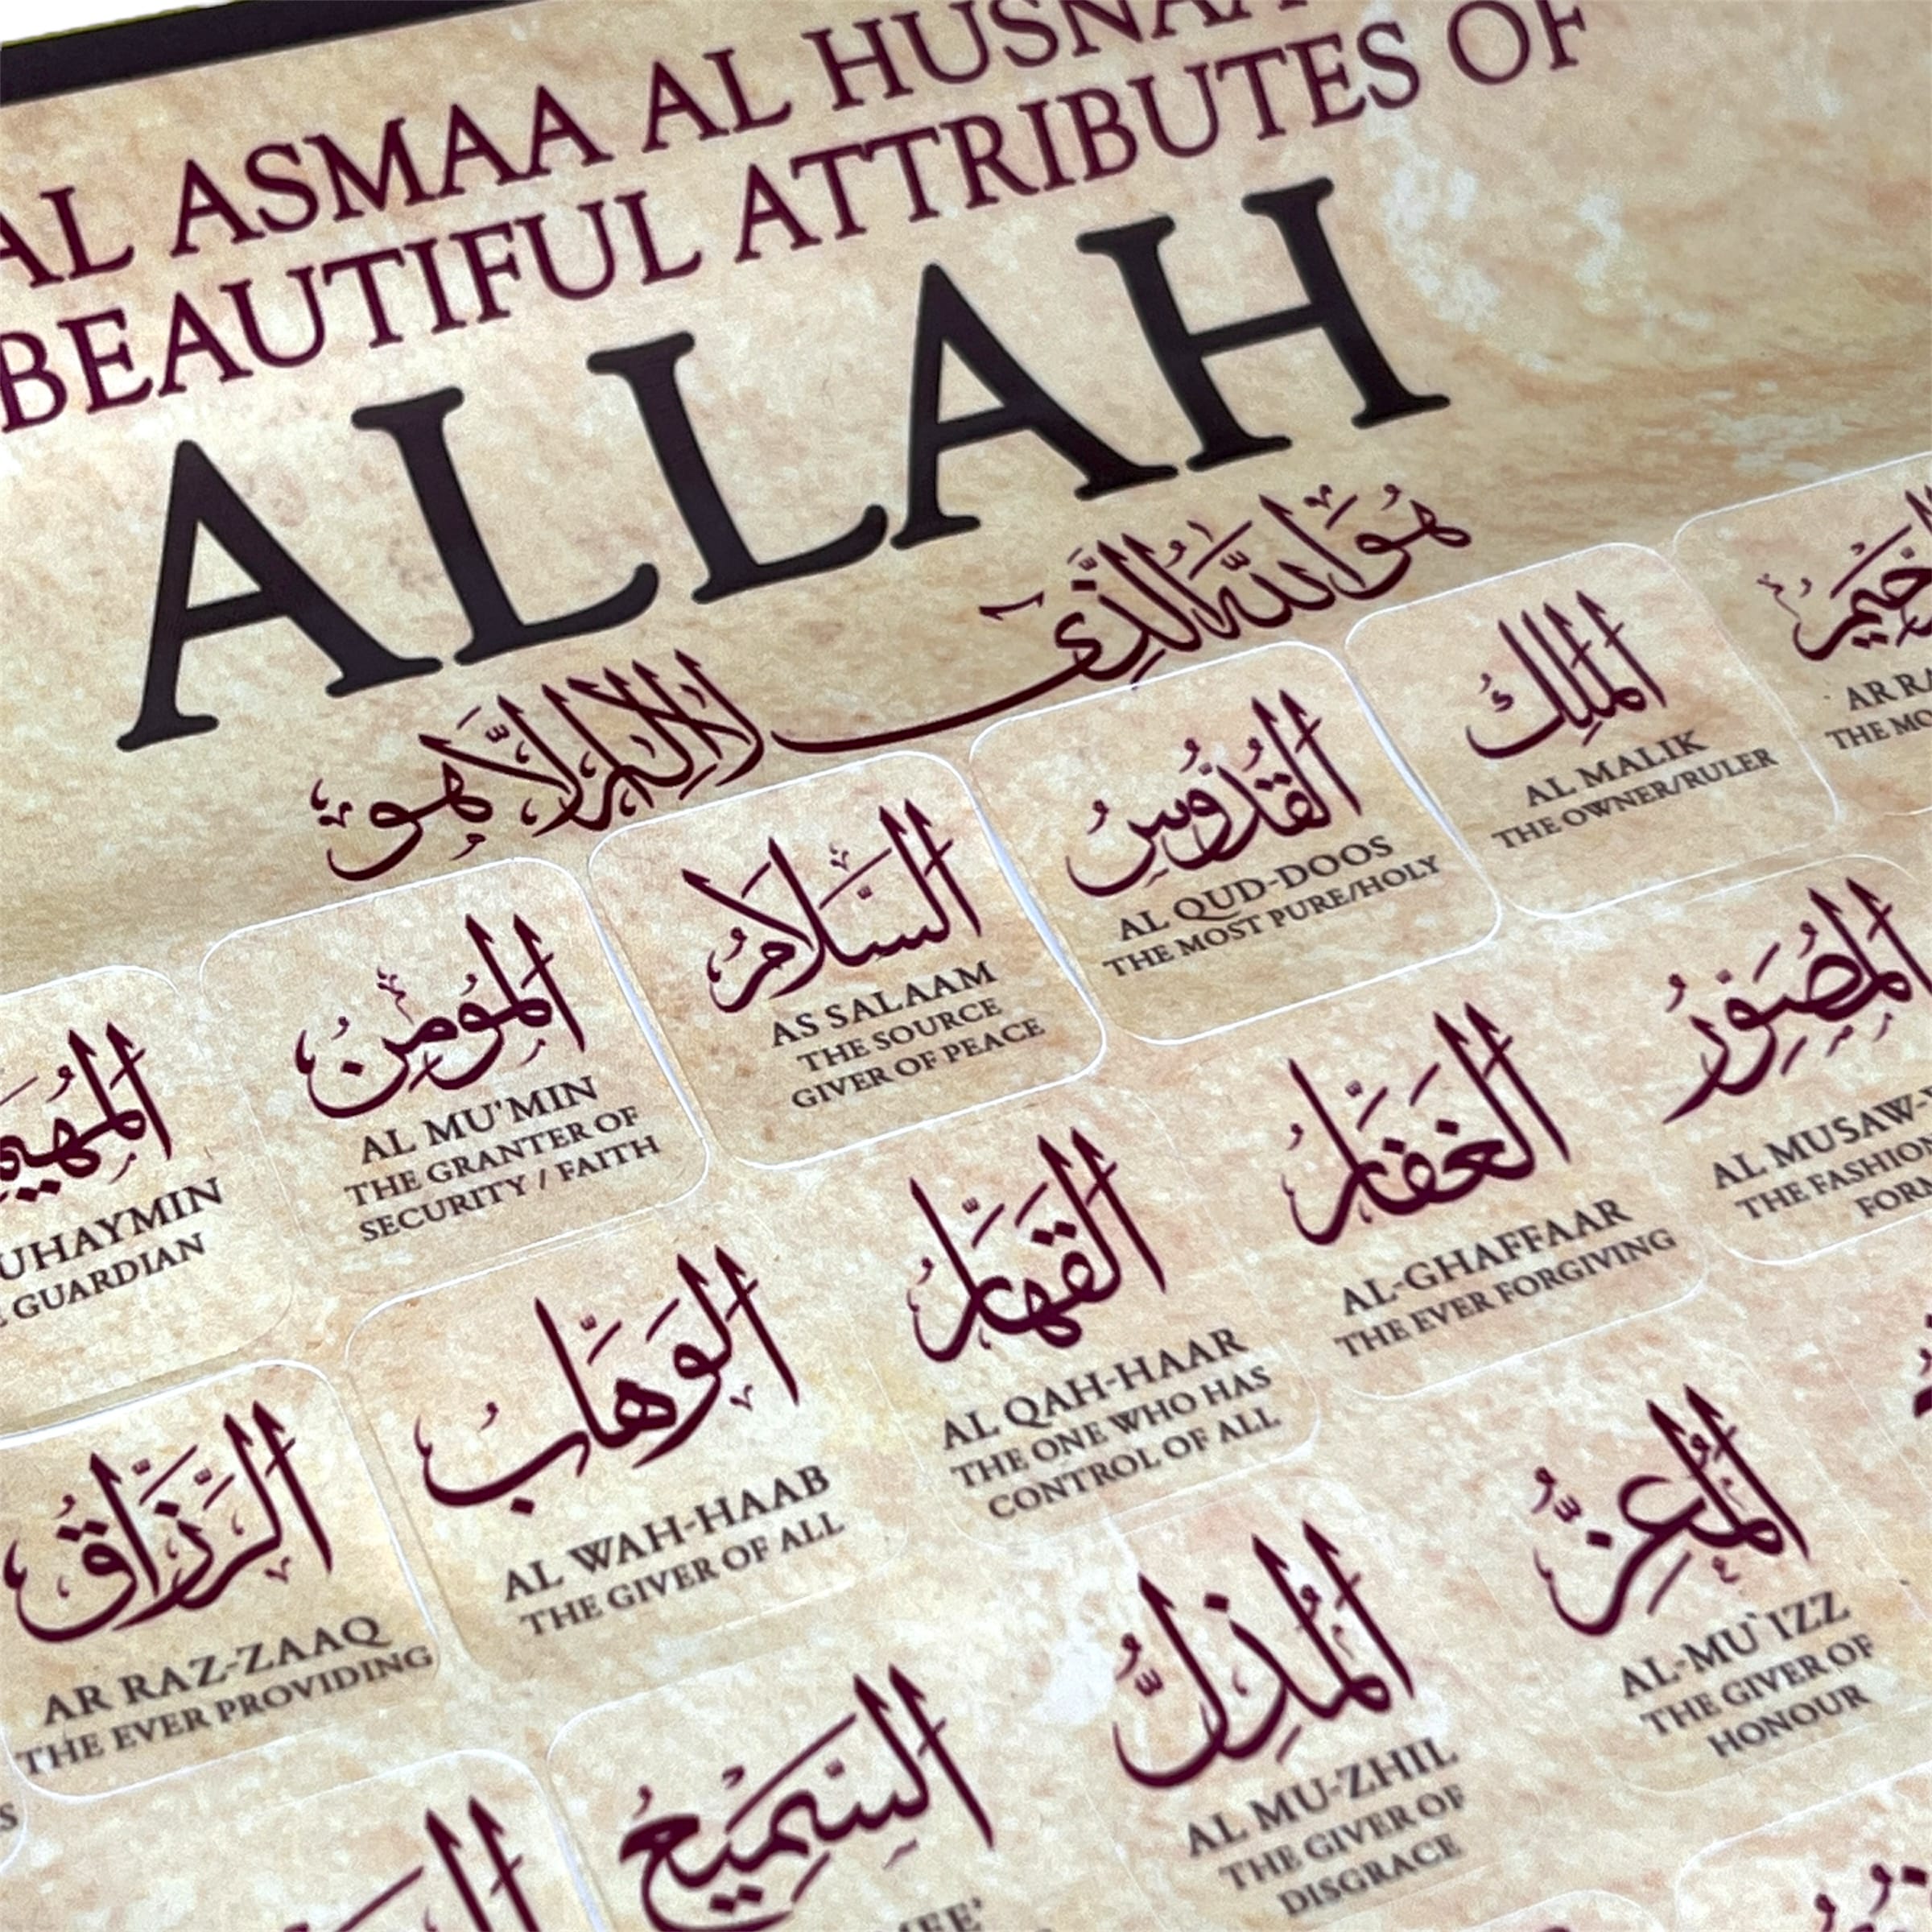 AL ASMAA AL HUSNAA
BEAUTIFUL ATTRIBUTES OF
ALLAH
هُوَ اللهُ الَّذِي لَا إِلٰهَ إِلَّا هُوَ
الْمَلِكُ
AL MALIK
THE OWNER/RULER
الْقُدُّوسُ
AL QUD-DOOS
THE MOST PURE/HOLY
السَّلَامُ
AS SALAAM
THE SOURCE
GIVER OF PEACE
الْمُؤْمِنُ
AL MU'MIN
THE GRANTER OF
SECURITY / FAITH
UHAYMIN
GUARDIAN
الْمُصَوِّرُ
AL MUSAW-
THE FASHION
FORM
الْغَفَّارُ
AL-GHAFFAAR
THE EVER FORGIVING
الْقَهَّارُ
AL QAH-HAAR
THE ONE WHO HAS
CONTROL OF ALL
الْوَهَّابُ
AL WAH-HAAB
THE GIVER OF ALL
الرَّزَّاقُ
AR RAZ-ZAAQ
THE EVER PROVIDING
الْمُعِزُّ
AL-MU`IZZ
THE GIVER OF
HONOUR
الْمُذِلُّ
AL MU-ZHIL
THE GIVER OF
DISGRACE
السَّمِيعُ